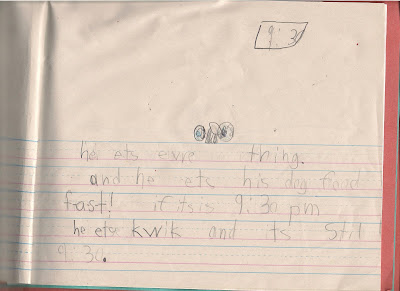 9:30
he ets evre thing.
and he ets his dog food
fast! if its is 9:30 pm
he ets kwik and its Stil
9:30.